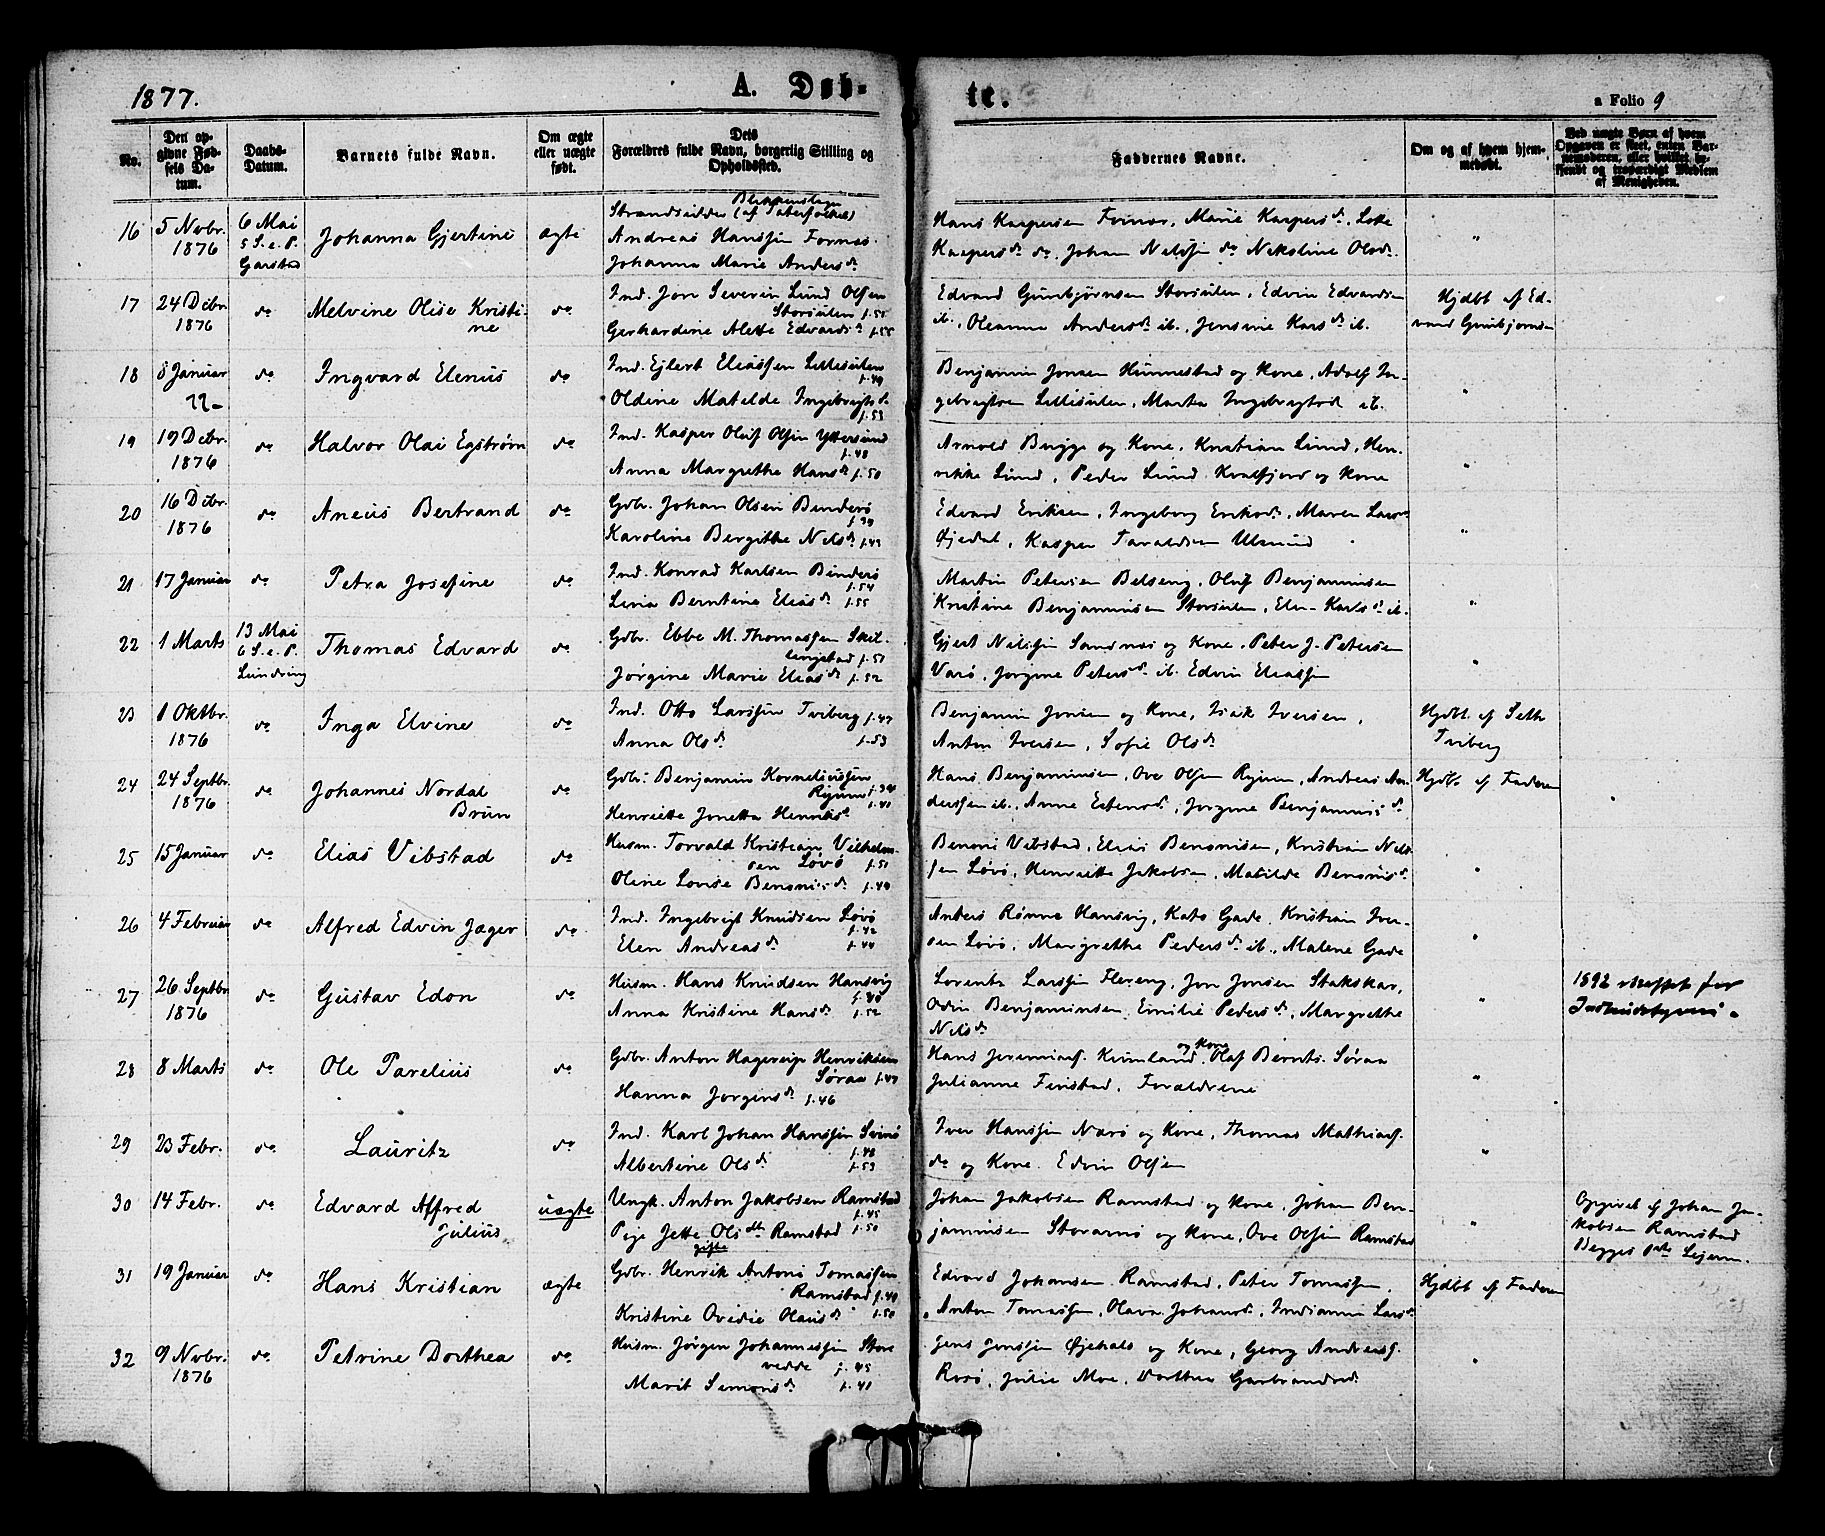 1877.
A. Døb-
te.
a Folio 9
No.
Den op-
givne Fød-
sels Da-
tum.
Daabs-
Datum.
Barnets fulde Navn.
Om ægte
eller uægte
født.
Dets
Forældres fulde Navn, borgerlig Stilling og
Opholdssted.
Faddernes Navne.
Om og af hvem hjem-
medøbt.
Ved uægte Børn af hvem
Opgaven er skeet, enten Bar-
nemoderen, eller hvilket be-
kjendt og troværdigt Medlem
af Menigheden.
16
5 Novbr.
1876
6 Mai
5 S. e. P.
Garstad
Johanna Gjertine
ægte
Strandsidder (af Taterfolket)
Andreas Hanssen Fornæs.
Johanna Marie Andersdr
Hans Kaspersen Fornæs, Marie Kaspersdr, Lotte
Kaspersdr do, Johan Nelssen do Nekoline Olsdr.
"
17
24 Debr.
1876
do
Melvine Olise Kristi-
ne
do
Ind. Jon Severin Lund Olsen
Storsulen f. 55
Gerhardine Alette Edvardsdr f. 55
Edvard Gunbjørnsen Storsulen, Edvin Edvardsen
ib., Oleanna Andersdr ib., Jensine Larsdr ib.
Hjdbt af Ed-
vard Gunbjørnsen
18
8 Januar
22-
do
Ingvard Elenus
do
Ind. Ejlert Eliassen Lillesulen
f. 49
Oldine Matilde Ingebrigtsdr
f. 53
Benjamin Jonsen Hunnestad og Kone, Adolf In-
gebrigtsen Lillesulen, Marta Ingebrigtsdr ib.
"
19
19 Debr.
1876
do
Halvor Olai Egstrøm
do
Ind. Kasper Oluf Olsen Yttersund
f. 48
Anna Margrethe Hansdr f. 50
Arnold Brygge og Kone, Kristian Lund, Hen-
rikke Lund, Peder Lund Kvalfjord og Kone
"
20
16 Debr.
1876
do
Aneus Bertrand
do
Gdbr. Johan Olsen Binderø
f. 39
Karoline Bergitte Nelsdr f. 43
Edvard Eriksen, Ingeborg Eriksdr, Maren Larsdr
Øjedal, Kasper Taraldsen Ulsund
"
21
17 Januar
do
Petra Josefine
do
Ind. Konrad Karlsen Binderø
f. 54
Lina Berntine Eliasdr f. 55
Martin Petersen Belseng, Oluf Benjaminsen
Kristine Benjaminsen Storsulen, Elen Karlsdr ib.
"
22
1 Marts
13 Mai
6 S. e. P.
Lundring
Thomas Edvard
do
Gdbr. Ebbe M. Thomassen Skil-
lingstad f. 51
Jørgine Marie Eliasdr f. 52
Gjert Nilssen Sandnæs og Kone, Peter J. Petersen
Varø, Jørgine Petersdr ib. Edvin Eliassen
"
23
1 Oktbr.
1876
do
Inga Elvine
do
Ind. Otto Larssen Tviberg f. 47
Anna Olsdr f. 53
Benjamin Jonsen og Kone, Isak Iversen,
Anton Iversen, Sofie Olsdr
Hjdbt. af Seth
Tviberg
24
24 Septbr.
1876
do
Johannes Nordal
Brun
do
Gdbr. Benjamin Korneliussen
Ryum f. 34
f. 41
Henriette Jonetta Henriksdr
Hans Benjaminsen, Ove Olsen Ryum, Andreas An-
derssen ib., Anne Estensdr, Jørgine Benjaminsdr
Hjdbt af Faderen
25
15 Januar
do
Elias Vibstad
do
Husm. Torvald Kristian Vilhelm-
sen Løvø f. 51
Oline Lovise Benonisdr f. 49
Benoni Vibstad, Elias Benonisen, Kristian Nels-
sen Løvø, Henriette Jakobsen, Matilde Benonisdr
"
26
4 Februar
do
Alfred Edvin Jæger
do
Ind. Ingebrigt Knudsen Løvø
f. 42
Elen Andreasdr f. 44
Anders Rømne Hansvig, Kato Gade, Kristian Iver-
sen Løvø, Margrethe Pedersdr ib., Malene Gade
"
27
26 Septbr
1876
do
Gustav Edon
do
Husm. Hans Knudsen Hansvig
f. 40
Anna Kristine Hansdr f. 52
Lorentz Larssen Flereng, Jon Jonsen Stakskar,
Odin Benjaminsen, Emilie Pedersdr, Margrethe
Nelsdr
"
1892 straffet for
Indbrudstyveri.
28
8 Marts
do
Ole Parelius
do
Gdbr. Anton Hagerup Henriksen
Søraa f. 47
Hanna Jørgensdr f. 46
Hans Jeremiass. Krinland og Kone, Olaf Bernts. Søraa
Julianne Finstad, Forældrene
"
29
23 Febr.
do
Lauritz
do
Ind. Karl Johan Hanssen Svinø
f. 48
Albertine Olsdr f. 53
Iver Hanssen Nærø og Kone, Thomas Mathiass.
do og Kone. Edvin Olsen
"
30
14 Febr.
do
Edvard Alfred
Julius
uægte
Ungk. Anton Jakobsen Ramstad
f. 45
Pige Jette Olsdtr Ramstad f. 50
gifte
Johan Jakobsen Ramstad og Kone, Johan Ben-
jaminsen Storarnø og Kone, Ove Olsen Ramstad
"
Opgivet af Johan Ja-
kobsen Ramstad
Begges 1ste Lejerm.
31
19 Januar
do
Hans Kristian
ægte
Gdbr. Henrik Antoni Tomassen
Ramstad f. 40
Kristine Ovedie Olausdr f. 50
Edvard Johansen Ramstad, Peter Tomassen,
Anton Tomassen, Olava Johansdr, Indianna Larsdr
Hjdbt af Faderen
32
9 Novbr.
1876
do
Petrine Dorthea
do
Husm. Jørgen Johannessen Store
vedde f. 45
Marit Simonsdr f. 41
Jens Jenssen Øjehals og Kone, Georg Andreass.
Rosø, Julie Moe, Dorthea Garbrandsdr.
"